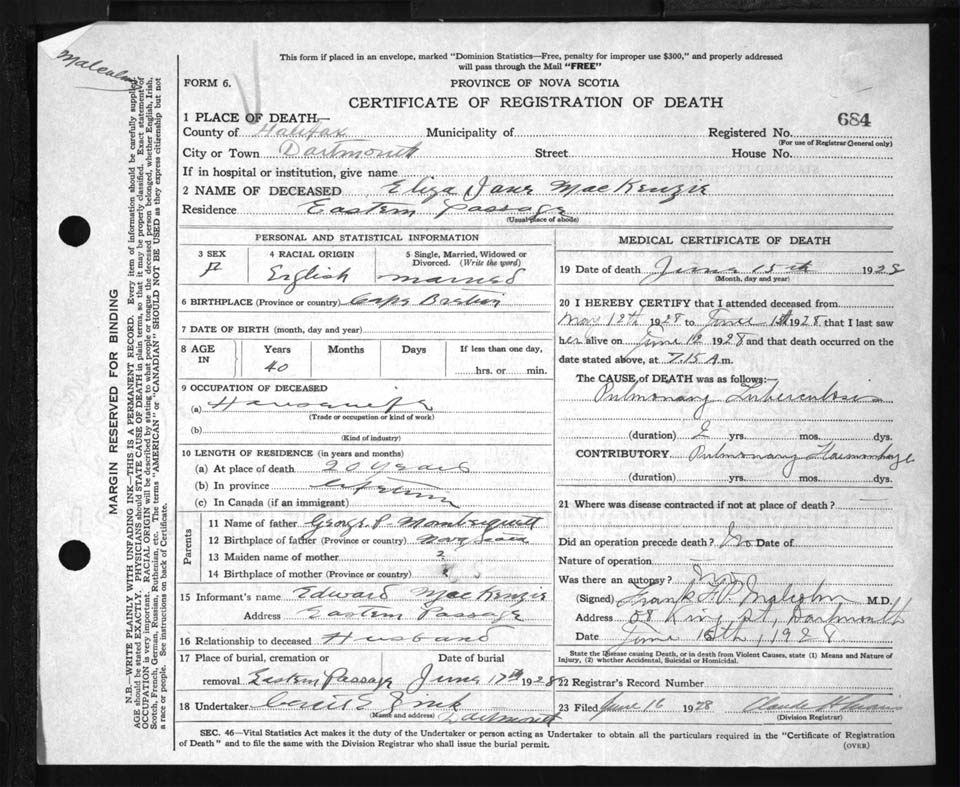 Malcolm
This form if placed in an envelope, marked "Dominion Statistics—Free, penalty for improper use $300," and properly addressed
will pass through the Mail "FREE"
FORM 6.
PROVINCE OF NOVA SCOTIA
CERTIFICATE OF REGISTRATION OF DEATH
1 PLACE OF DEATH—
684
County of Halifax Municipality of Registered No.
(For use of Registrar General only)
City or Town Dartmouth Street House No.
If in hospital or institution, give name
2 NAME OF DECEASED Eliza Jane MacKenzie
Residence Eastern Passage
(Usual place of abode)
PERSONAL AND STATISTICAL INFORMATION
3 SEX F
4 RACIAL ORIGIN English
5 Single, Married, Widowed or Divorced. (Write the word) married
6 BIRTHPLACE (Province or country) Cape Breton
7 DATE OF BIRTH (month, day and year)
8 AGE IN Years 40 Months Days If less than one day, hrs. or min.
9 OCCUPATION OF DECEASED
(a) Housewife
(Trade or occupation or kind of work)
(b)
(Kind of industry)
10 LENGTH OF RESIDENCE (in years and months)
(a) At place of death 20 years
(b) In province lifetime
(c) In Canada (if an immigrant)
Parents
11 Name of father George P.
12 Birthplace of father (Province or country) Nova Scotia
13 Maiden name of mother ?
14 Birthplace of mother (Province or country)
15 Informant's name Edward MacKenzie
Address Eastern Passage
16 Relationship to deceased Husband
17 Place of burial, cremation or Date of burial
removal Eastern Passage June 17th 1928
18 Undertaker Zink
(Name and address) Dartmouth
MEDICAL CERTIFICATE OF DEATH
19 Date of death June 15th 1928
(Month, day and year)
20 I HEREBY CERTIFY that I attended deceased from
May 12th 1928 to June 1928 that I last saw
her alive on June 12 1928 and that death occurred on the
date stated above, at 7.15 A.m.
The CAUSE of DEATH was as follows:
Pulmonary Tuberculosis
(duration) 2 yrs. mos. dys.
CONTRIBUTORY Pulmonary Haemorrhage
(duration) yrs. mos. dys.
21 Where was disease contracted if not at place of death?
Did an operation precede death? No Date of
Nature of operation
Was there an autopsy? No
(Signed) Frank G P Malcolm M.D.
Address 58 King St, Dartmouth
Date June 15th, 1928
State the Disease causing Death, or in death from Violent Causes, state (1) Means and Nature of
Injury, (2) whether Accidental, Suicidal or Homicidal.
22 Registrar's Record Number
23 Filed June 16 1928 Claude H
(Division Registrar)
SEC. 46—Vital Statistics Act makes it the duty of the Undertaker or person acting as Undertaker to obtain all the particulars required in the "Certificate of Registration
of Death" and to file the same with the Division Registrar who shall issue the burial permit.
(OVER)
MARGIN RESERVED FOR BINDING
N.B.—WRITE PLAINLY WITH UNFADING INK—THIS IS A PERMANENT RECORD. Every item of information should be carefully supplied.
AGE should be stated EXACTLY. PHYSICIANS should STATE CAUSE OF DEATH in plain terms, so that it may be properly classified. Exact statement of
OCCUPATION is very important. RACIAL ORIGIN will be described by stating to what people or tongue the deceased person belonged, whether English, Irish,
Scotch, French, German, Russian, Ruthenian, etc. The terms "AMERICAN" or "CANADIAN" SHOULD NOT BE USED as they express citizenship but not
a race or people. See instructions on back of Certificate.